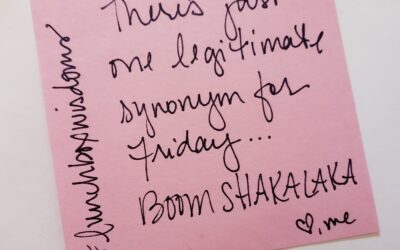 There's just
one legitimate
synonym for
Friday...
BOOM SHAKALAKA
♡, me
#lunchboxwisdoms